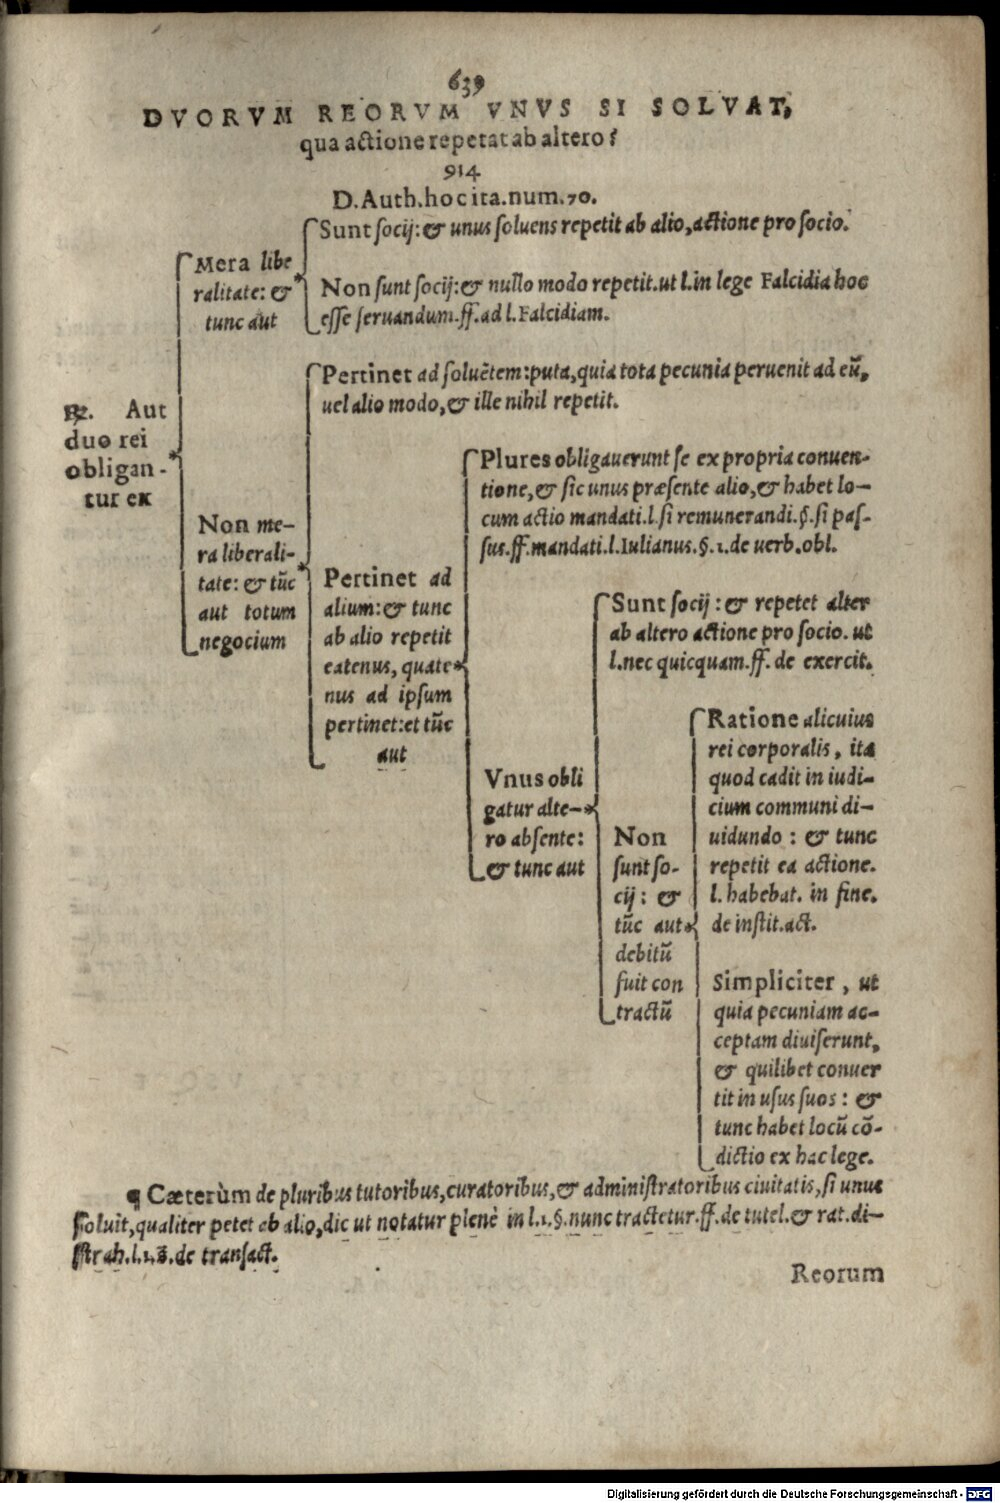 639
DVORVM REORVM VNVS SI SOLVAT,
qua actione repetat ab altero?
914
D. Auth. hoc ita. num. 70.
Sunt socij: & unus soluens repetit ab alio, actione pro socio.
Mera libe
ralitate: &
tunc aut
Non sunt socij: & nullo modo repetit. ut l. in lege Falcidia hoc
esse seruandum. ff. ad l. Falcidiam.
Pertinet ad soluẽtem: puta, quia tota pecunia peruenit ad eũ,
uel alio modo, & ille nihil repetit.
℞. Aut
duo rei
obligan-
tur ex
Plures obligauerunt se ex propria conuen-
tione, & sic unus præsente alio, & habet lo-
cum actio mandati. l. si remunerandi. §. si pas-
sus. ff. mandati. l. Iulianus. §. 1. de uerb. obl.
Non me-
ra liberali-
tate: & tũc
aut totum
negocium
Pertinet ad
alium: & tunc
ab alio repetit
eatenus, quate
nus ad ipsum
pertinet: et tũc
aut
Sunt socij: & repetet alter
ab altero actione pro socio. ut
l. nec quicquam. ff. de exercit.
Vnus obli
gatur alte-
ro absente:
& tunc aut
Ratione alicuius
rei corporalis, ita
quod cadit in iudi-
cium communi di-
uidundo: & tunc
repetit ea actione.
l. habebat. in fine.
de instit. act.
Non
sunt so-
cij: &
tũc aut
debitũ
fuit con
tractũ
Simpliciter, ut
quia pecuniam ac-
ceptam diuiserunt,
& quilibet conuer
tit in usus suos: &
tunc habet locũ cõ-
dictio ex hac lege.
¶ Cæterùm de pluribus tutoribus, curatoribus, & administratoribus ciuitatis, si unus
soluit, qualiter petet ab alio, dic ut notatur plenè in l. 1. §. nunc tractetur. ff. de tutel. & rat. di-
strah. l. 1. 3. de transact.
Reorum
Digitalisierung gefördert durch die Deutsche Forschungsgemeinschaft - DFG